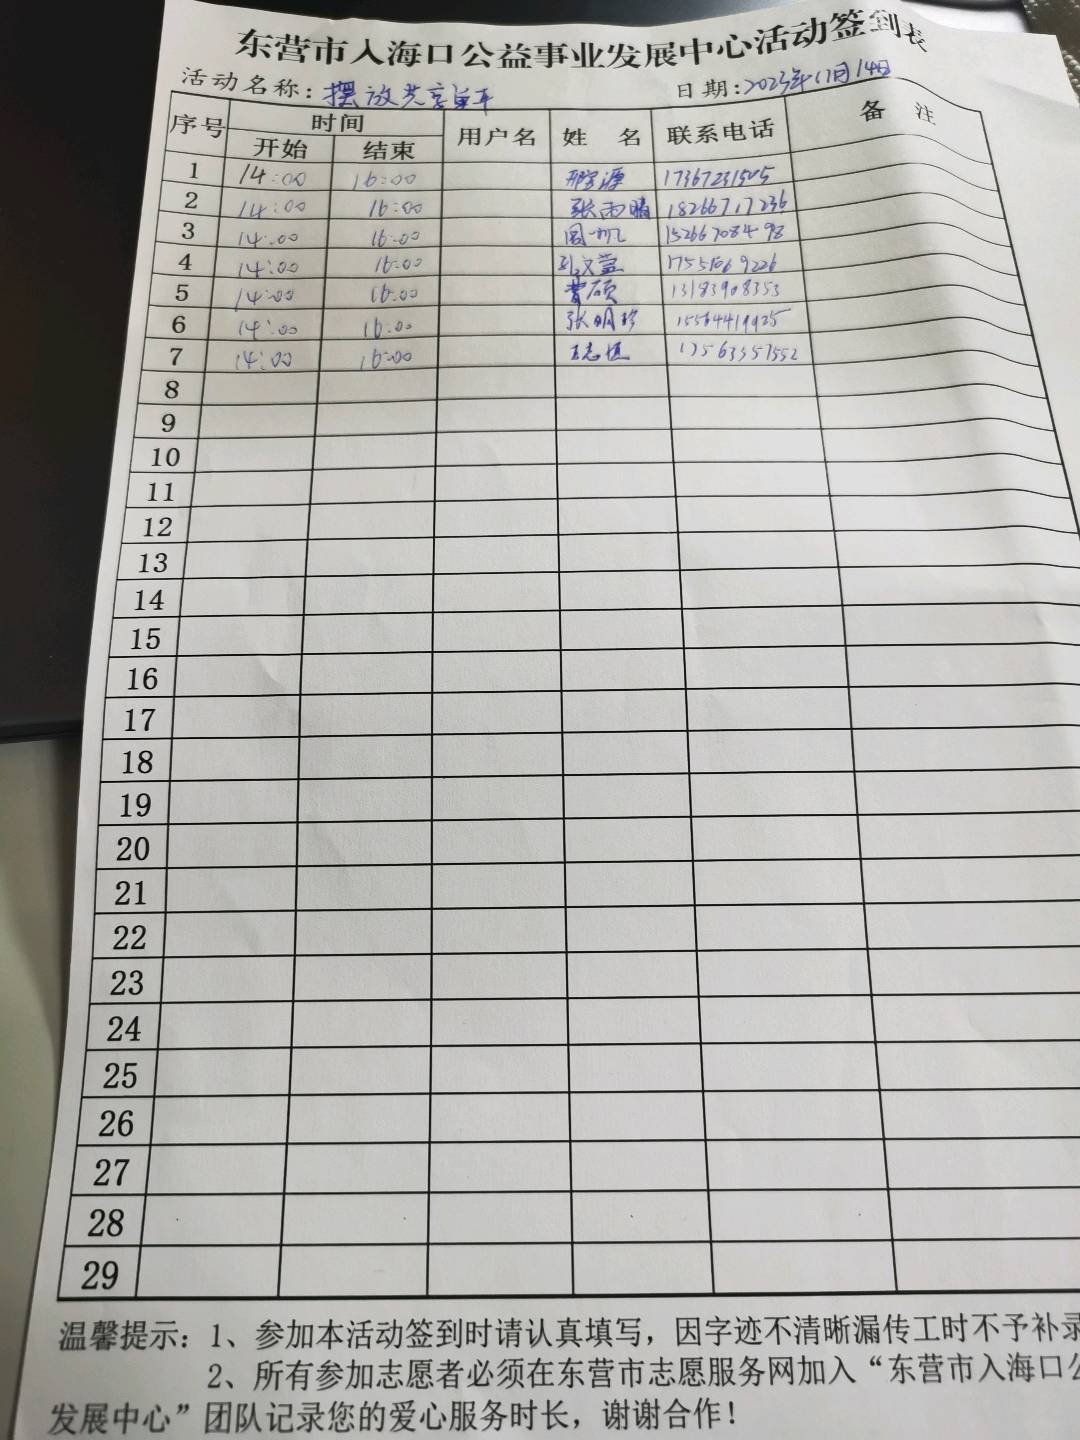 东营市入海口公益事业发展中心活动签到表
活动名称：摆放共享单车 日期：2023年11月14日
序号 时间 用户名 姓 名 联系电话 备 注
开始 结束
1 14:00 16:00
2 14:00 16:00 张雨晴 18266717236
3 14:00 16:00 15266708498
4 14:00 16:00
5 14:00 16:00 13183908353
6 14:00 16:00 张明珍
7 14:00 16:00 王志恒 17563357552
8
9
10
11
12
13
14
15
16
17
18
19
20
21
22
23
24
25
26
27
28
29
温馨提示：1、参加本活动签到时请认真填写，因字迹不清晰漏传工时不予补录
2、所有参加志愿者必须在东营市志愿服务网加入“东营市入海口公
发展中心”团队记录您的爱心服务时长，谢谢合作！